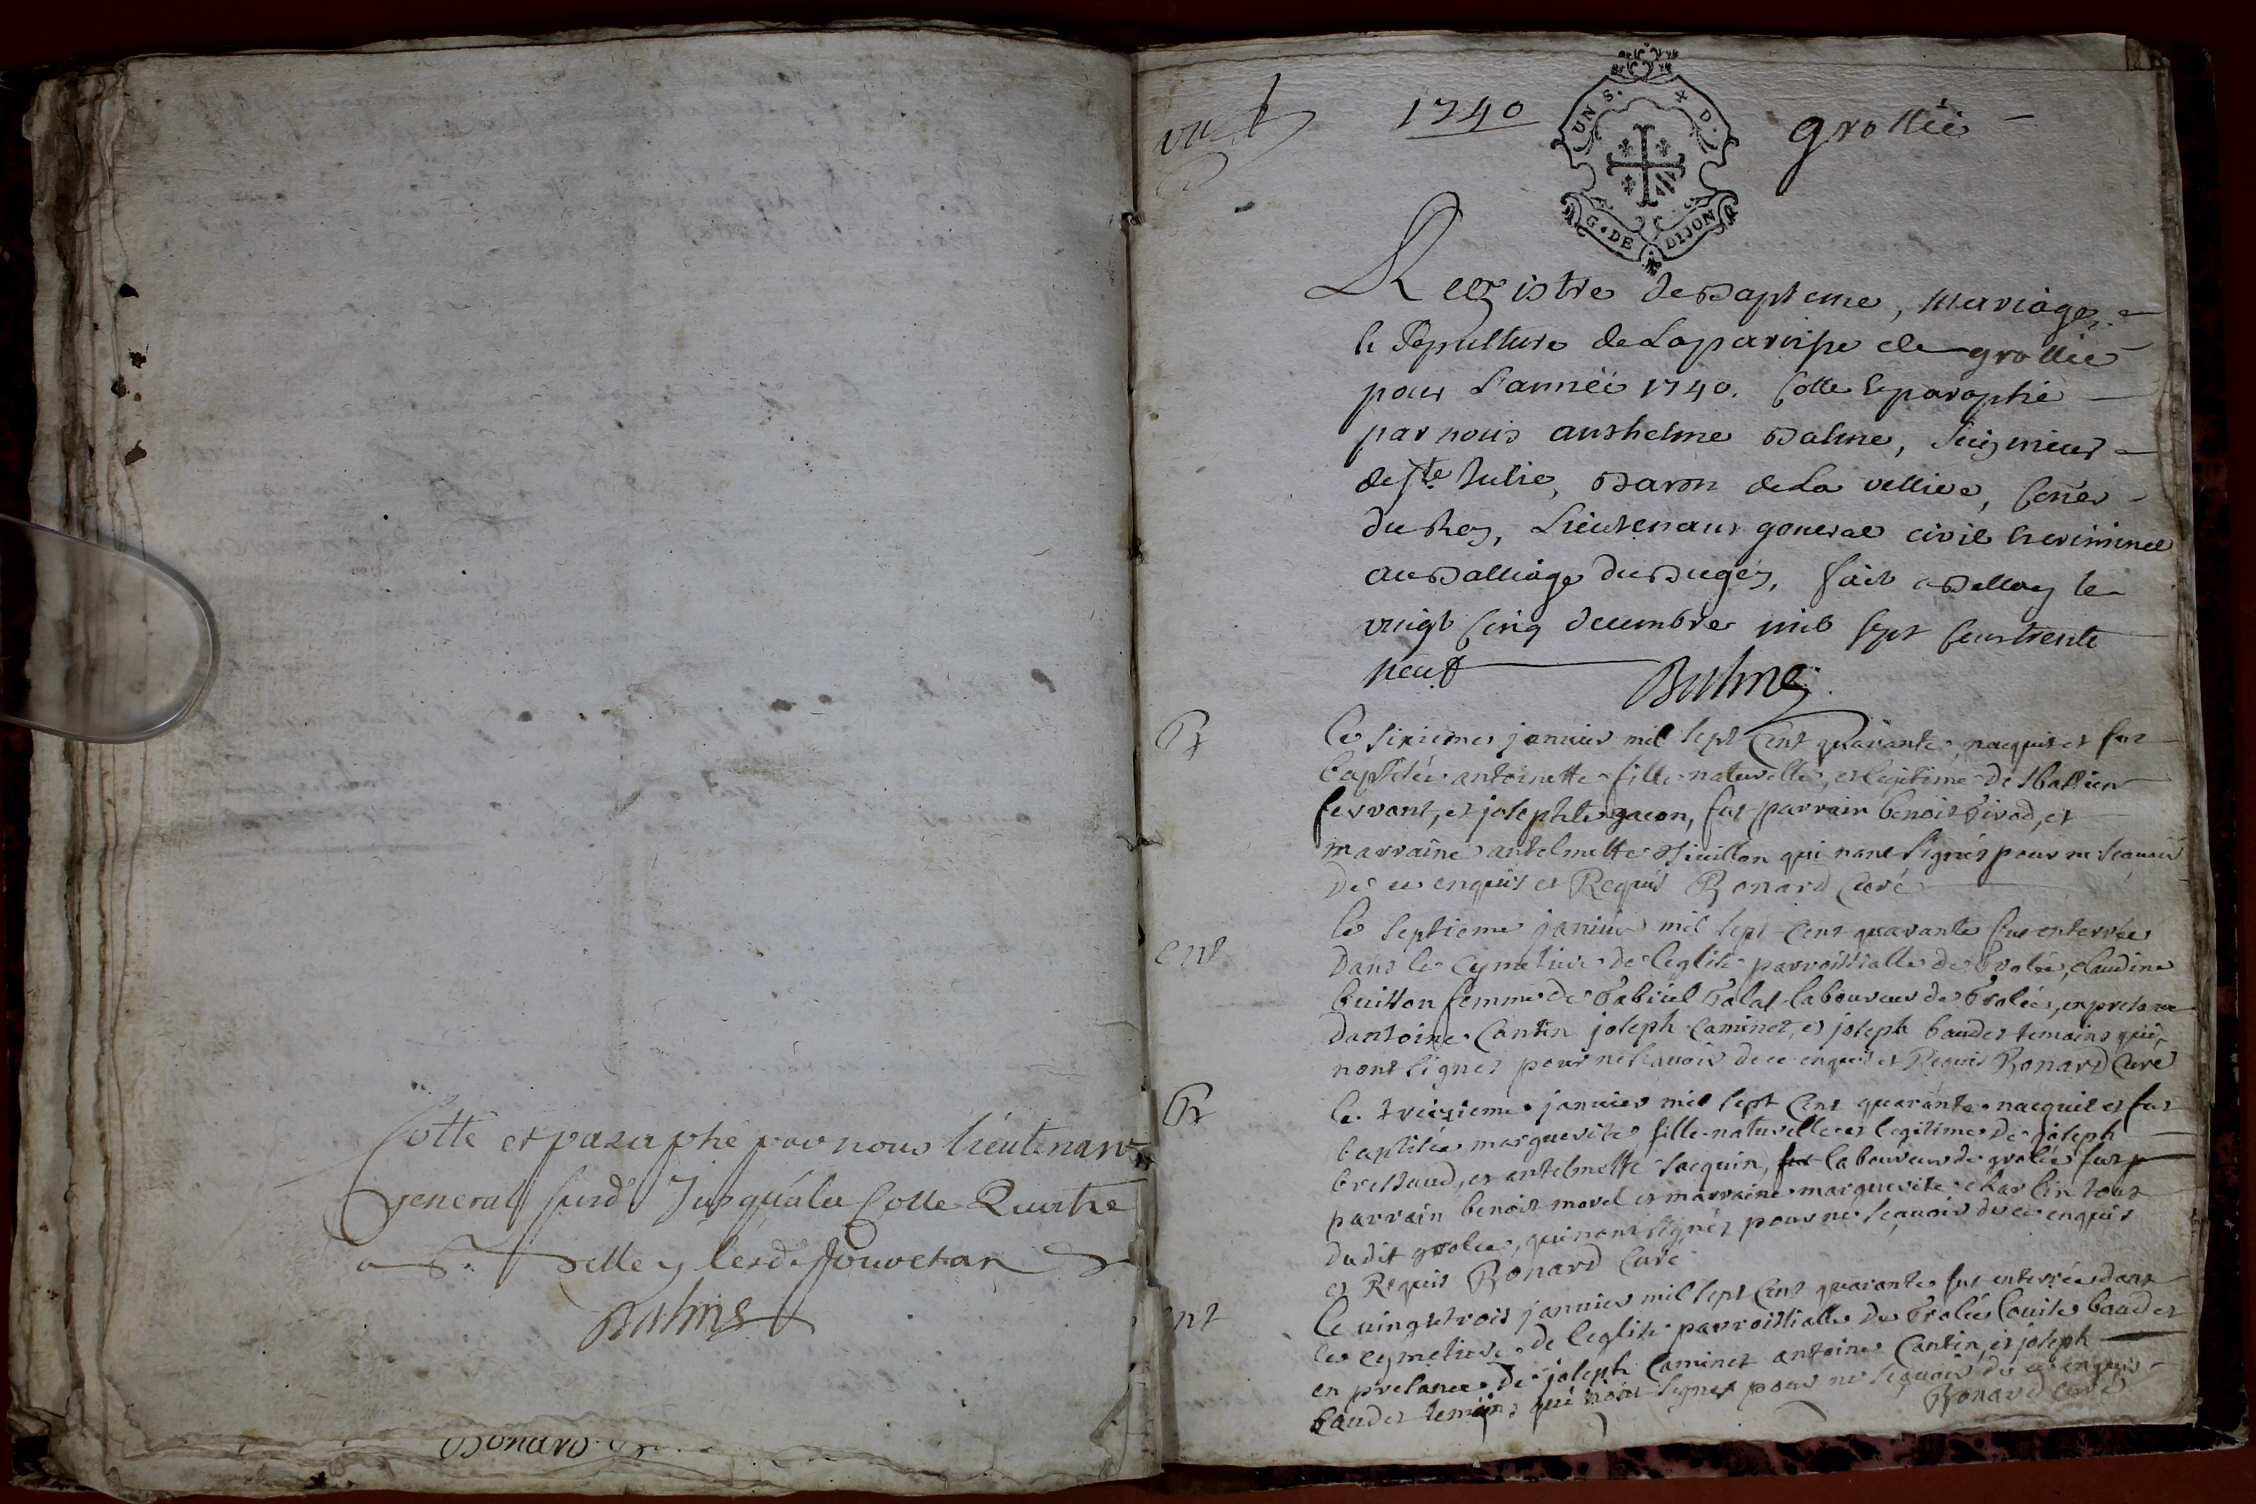 Cotte et paraphé par nous lieutenant
general susd. Jusqu'a la Cotte Quatre
a Belley lesd. jour et an
Balme
Bonard
1740
grollée
UN S. D. G. DE DIJON
Registre de Bapteme, Mariage,
& Sepulture de La paroisse de grollée
pour L'année 1740. Cotté & paraphé
par nous anthelme Balme, Seigneur
de Ste Julie, Baron de La velliere, Coner
du Roy, Lieutenant general civil & criminel
au Balliage du Bugey, fait a Belley le
vingt Cinq decembre mil sept Cent trente
neuf
Balme
B
Le sixieme janvier mil sept Cent quarante, nacquit et fut
baptisée antoinette fille naturelle, et legitime de sbastien
servant, et josephte gacon, fut parrain benoit Girod, et
marraine antelmette Siuillon qui nont signés pour ne scauoir
de ce enquis et Requis Bonard Curé
ent
le septieme janvier mil sept Cent quarante fut enterrée
Dans le cymetiere de leglise parroissialle de Grolée, claudine
buisson femme de Gabriel Galas laboureur de Grolée, en presence
dantoine Cantin joseph Caminet, et joseph baudet temoins qui
nont signés pour ne scauoir de ce enquis et Requis Bonard Curé
B
le treizieme janvier mil sept Cent quarante nacquit et fut
baptisée marguerite fille naturelle et legitime de joseph
bressaud, et antelmette jacquin, laboureur de grolée fut
parrain benoit morel et marraine marguerite charlin tous
dudit grolée, qui nont signés pour ne scauoir de ce enquis
et Requis Bonard Curé
ent
Le vingt trois janvier mil sept Cent quarante fut enterrée dans
le cymetiere de leglise parroissialle de Grolée Louise baudet
en presance de joseph Caminet antoine Cantin, et joseph
baudet temoins qui nont signés pour ne scauoir de ce enquis
Bonard Curé